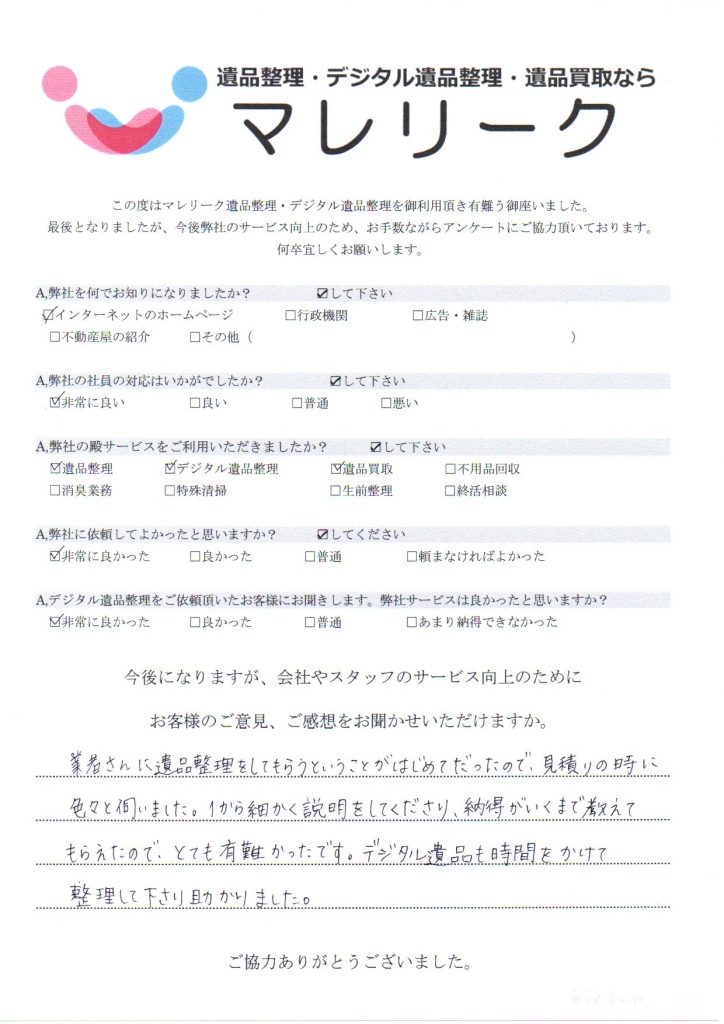 遺品整理・デジタル遺品整理・遺品買取なら
マレリーク
この度はマレリーク遺品整理・デジタル遺品整理を御利用頂き有難う御座いました。
最後となりましたが、今後弊社のサービス向上のため、お手数ながらアンケートにご協力頂いております。
何卒宜しくお願いします。
A,弊社を何でお知りになりましたか？ ☑して下さい
☑インターネットのホームページ □行政機関 □広告・雑誌
□不動産屋の紹介 □その他（ ）
A,弊社の社員の対応はいかがでしたか？ ☑して下さい
☑非常に良い □良い □普通 □悪い
A,弊社の殿サービスをご利用いただきましたか？ ☑して下さい
☑遺品整理 ☑デジタル遺品整理 ☑遺品買取 □不用品回収
□消臭業務 □特殊清掃 □生前整理 □終活相談
A,弊社に依頼してよかったと思いますか？ ☑してください
☑非常に良かった □良かった □普通 □頼まなければよかった
A,デジタル遺品整理をご依頼頂いたお客様にお聞きします。弊社サービスは良かったと思いますか？
☑非常に良かった □良かった □普通 □あまり納得できなかった
今後になりますが、会社やスタッフのサービス向上のために
お客様のご意見、ご感想をお聞かせいただけますか。
業者さんに遺品整理をしてもらうということがはじめてだったので、見積りの時に
色々と伺いました。1から細かく説明をしてくださり、納得がいくまで教えて
もらえたので、とても有難かったです。デジタル遺品も時間をかけて
整理して下さり助かりました。
ご協力ありがとうございました。